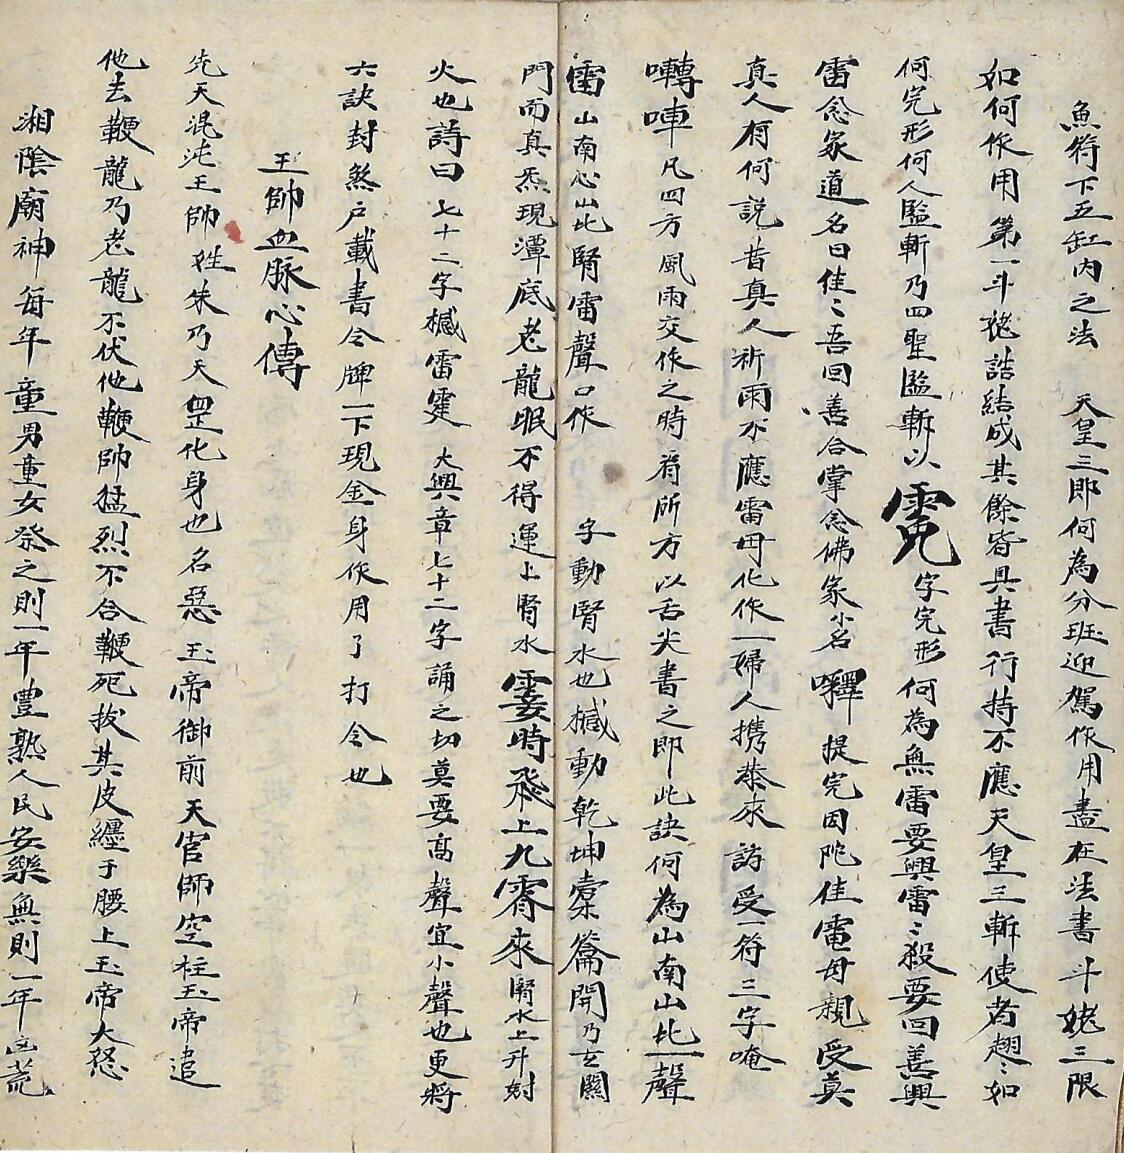 魚符下五缸内之法　天皇三郎何為分班迎駕作用盡在法書斗姥三限
如何作用第一斗姥誥結成其餘皆具書行持不應天皇三斬使者趨〻如
何完形何人監斬乃四聖監斬以字完形何為無雷要興雷〻殺要回善興
雷念家道名曰佳〻吾回善合掌念佛家小名㘁提完因陀佳電母親受莫
真人有何説昔真人祈雨不應雷母化作一婦人携茶來訪受一符三字唵
囀㖠凡四方風雨交作之時看所方以舌尖書之即此訣何為山南山北一聲
雷山南心山北腎雷聲口作　字動腎水也撼動乾坤橐籥開乃玄關
門而真炁現潭底老龍眠不得運上腎水霎時飛上九霄來腎水上升對
火也詩曰七十二字撼雷霆大興章七十二字誦之切莫要高聲宜小聲也更將
六訣封煞户載書令牌一下現金身作用了打令也
王帥血脉心傳
先天混沌王帥姓朱乃天罡化身也名惡玉帝御前天官師空柱玉帝追
他去鞭龍乃老龍不伏他鞭帥猛烈不合鞭死拔其皮纏于腰上玉帝大怒
湘陰廟神每年童男童女祭之則一年豐熟人民安樂無則一年凶荒